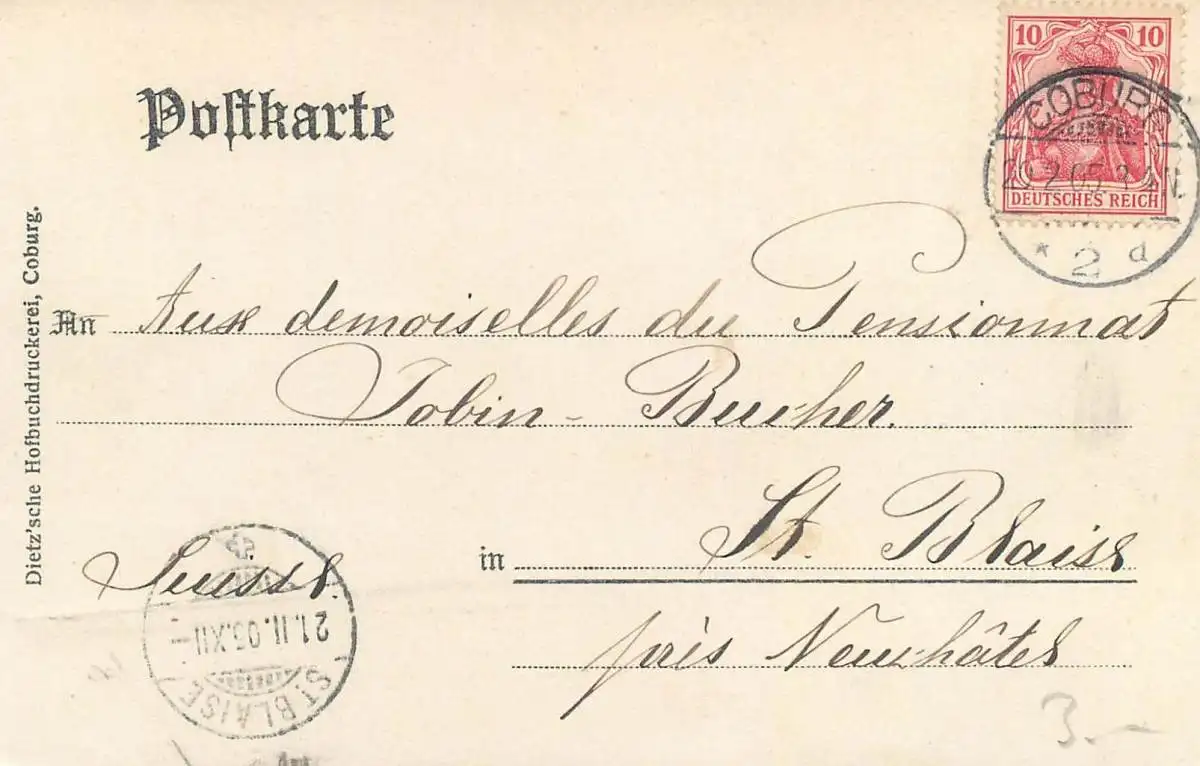 Postkarte
10 10
DEUTSCHES REICH
COBURG
2 d
Dietz'sche Hofbuchdruckerei, Coburg.
An Aux demoiselles du Pensionnat
Jobin-Bucher.
in St. Blaise
Suisse.
près Neuchâtel
21.II.05.XII-
ST. BLAISE
3.-